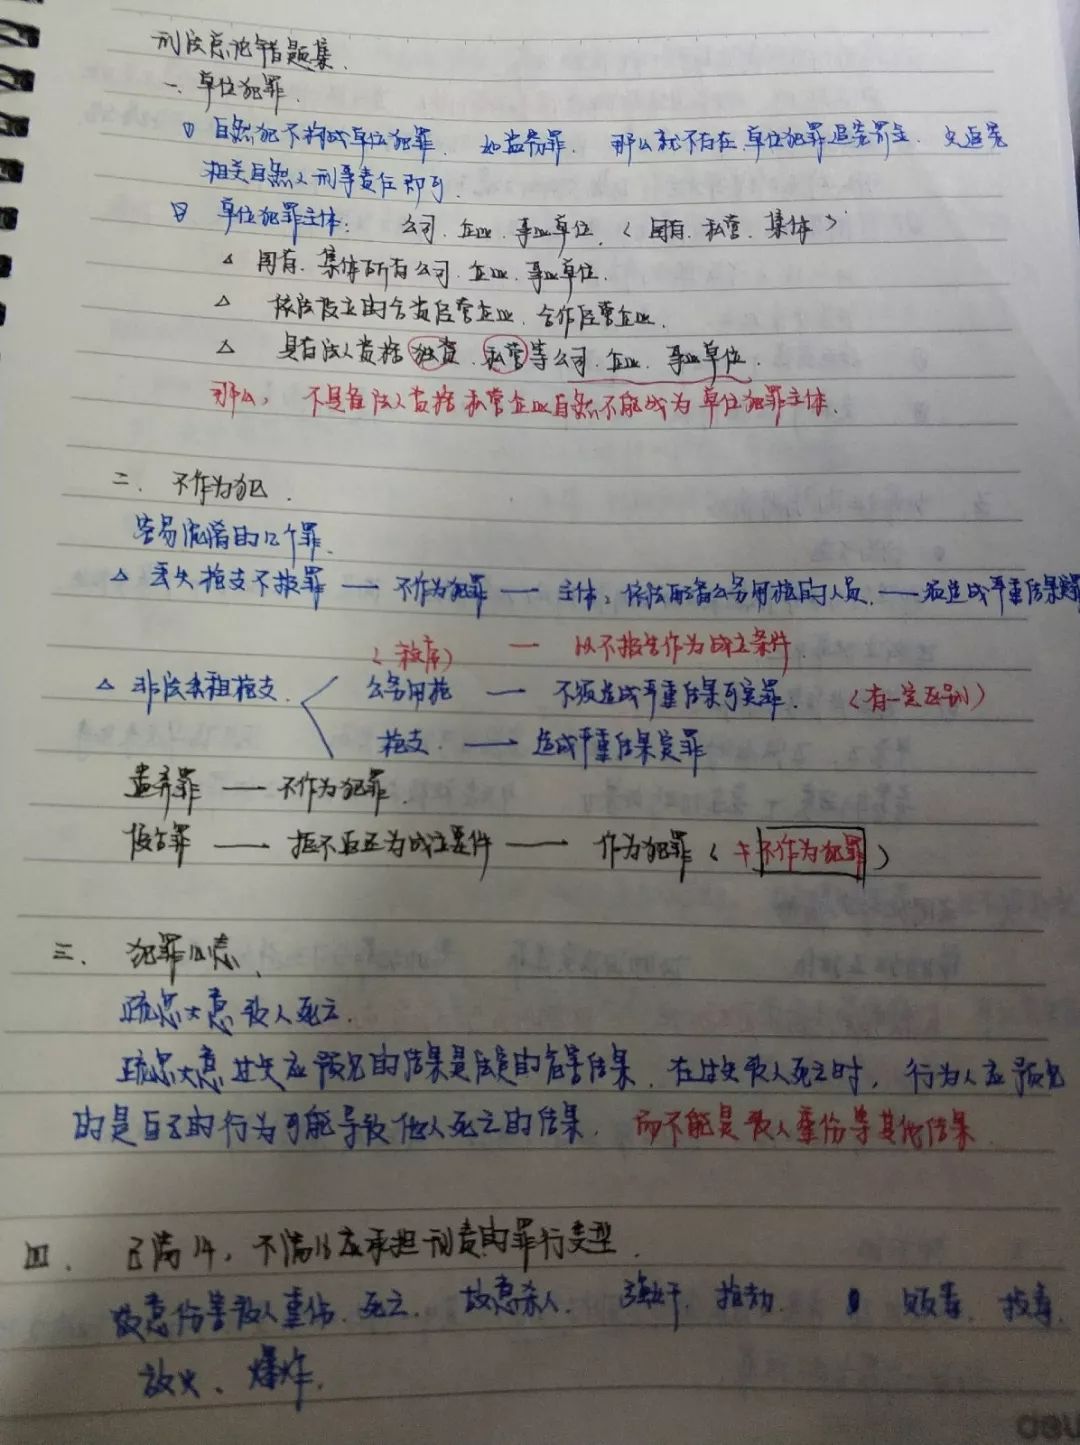 刑法总论错题集.
一. 单位犯罪.
① 自然犯不构成单位犯罪. 如盗窃罪. 那么就不存在单位犯罪追究罪责. 只追究
相关自然人刑事责任即可.
② 单位犯罪主体: 公司. 企业. 事业单位. (国有. 私营. 集体)
△ 国有. 集体所有公司. 企业. 事业单位.
△ 依法设立的合资经营企业. 合作经营企业.
△ 具有法人资格独资. 私营等公司. 企业. 事业单位.
那么, 不具备法人资格私营企业自然不能成为单位犯罪主体.
二. 不作为犯.
容易混淆的几个罪.
△ 丢失枪支不报罪 — 不作为犯罪 — 主体: 依法配备公务用枪的人员. — 须造成严重结果
— 以不报告作为成立条件
△ 非法出租枪支. 公务用枪 — 不须造成严重结果可定罪. (有一定区别)
枪支. — 造成严重结果定罪
遗弃罪 — 不作为犯罪.
侵占罪 — 拒不退还为成立要件 — 作为犯罪 (不作为犯罪)
三. 犯罪
疏忽大意致人死亡.
疏忽大意过失应预见的结果是法定的危害结果. 在过失致人死亡时, 行为人应预见
的是自己的行为可能导致他人死亡的结果. 而不能是致人重伤等其他结果.
四. 已满14, 不满16应承担刑责的罪行类型.
故意伤害致人重伤. 死亡. 故意杀人. 强奸. 抢劫. 贩毒. 投毒.
放火、爆炸.
deli